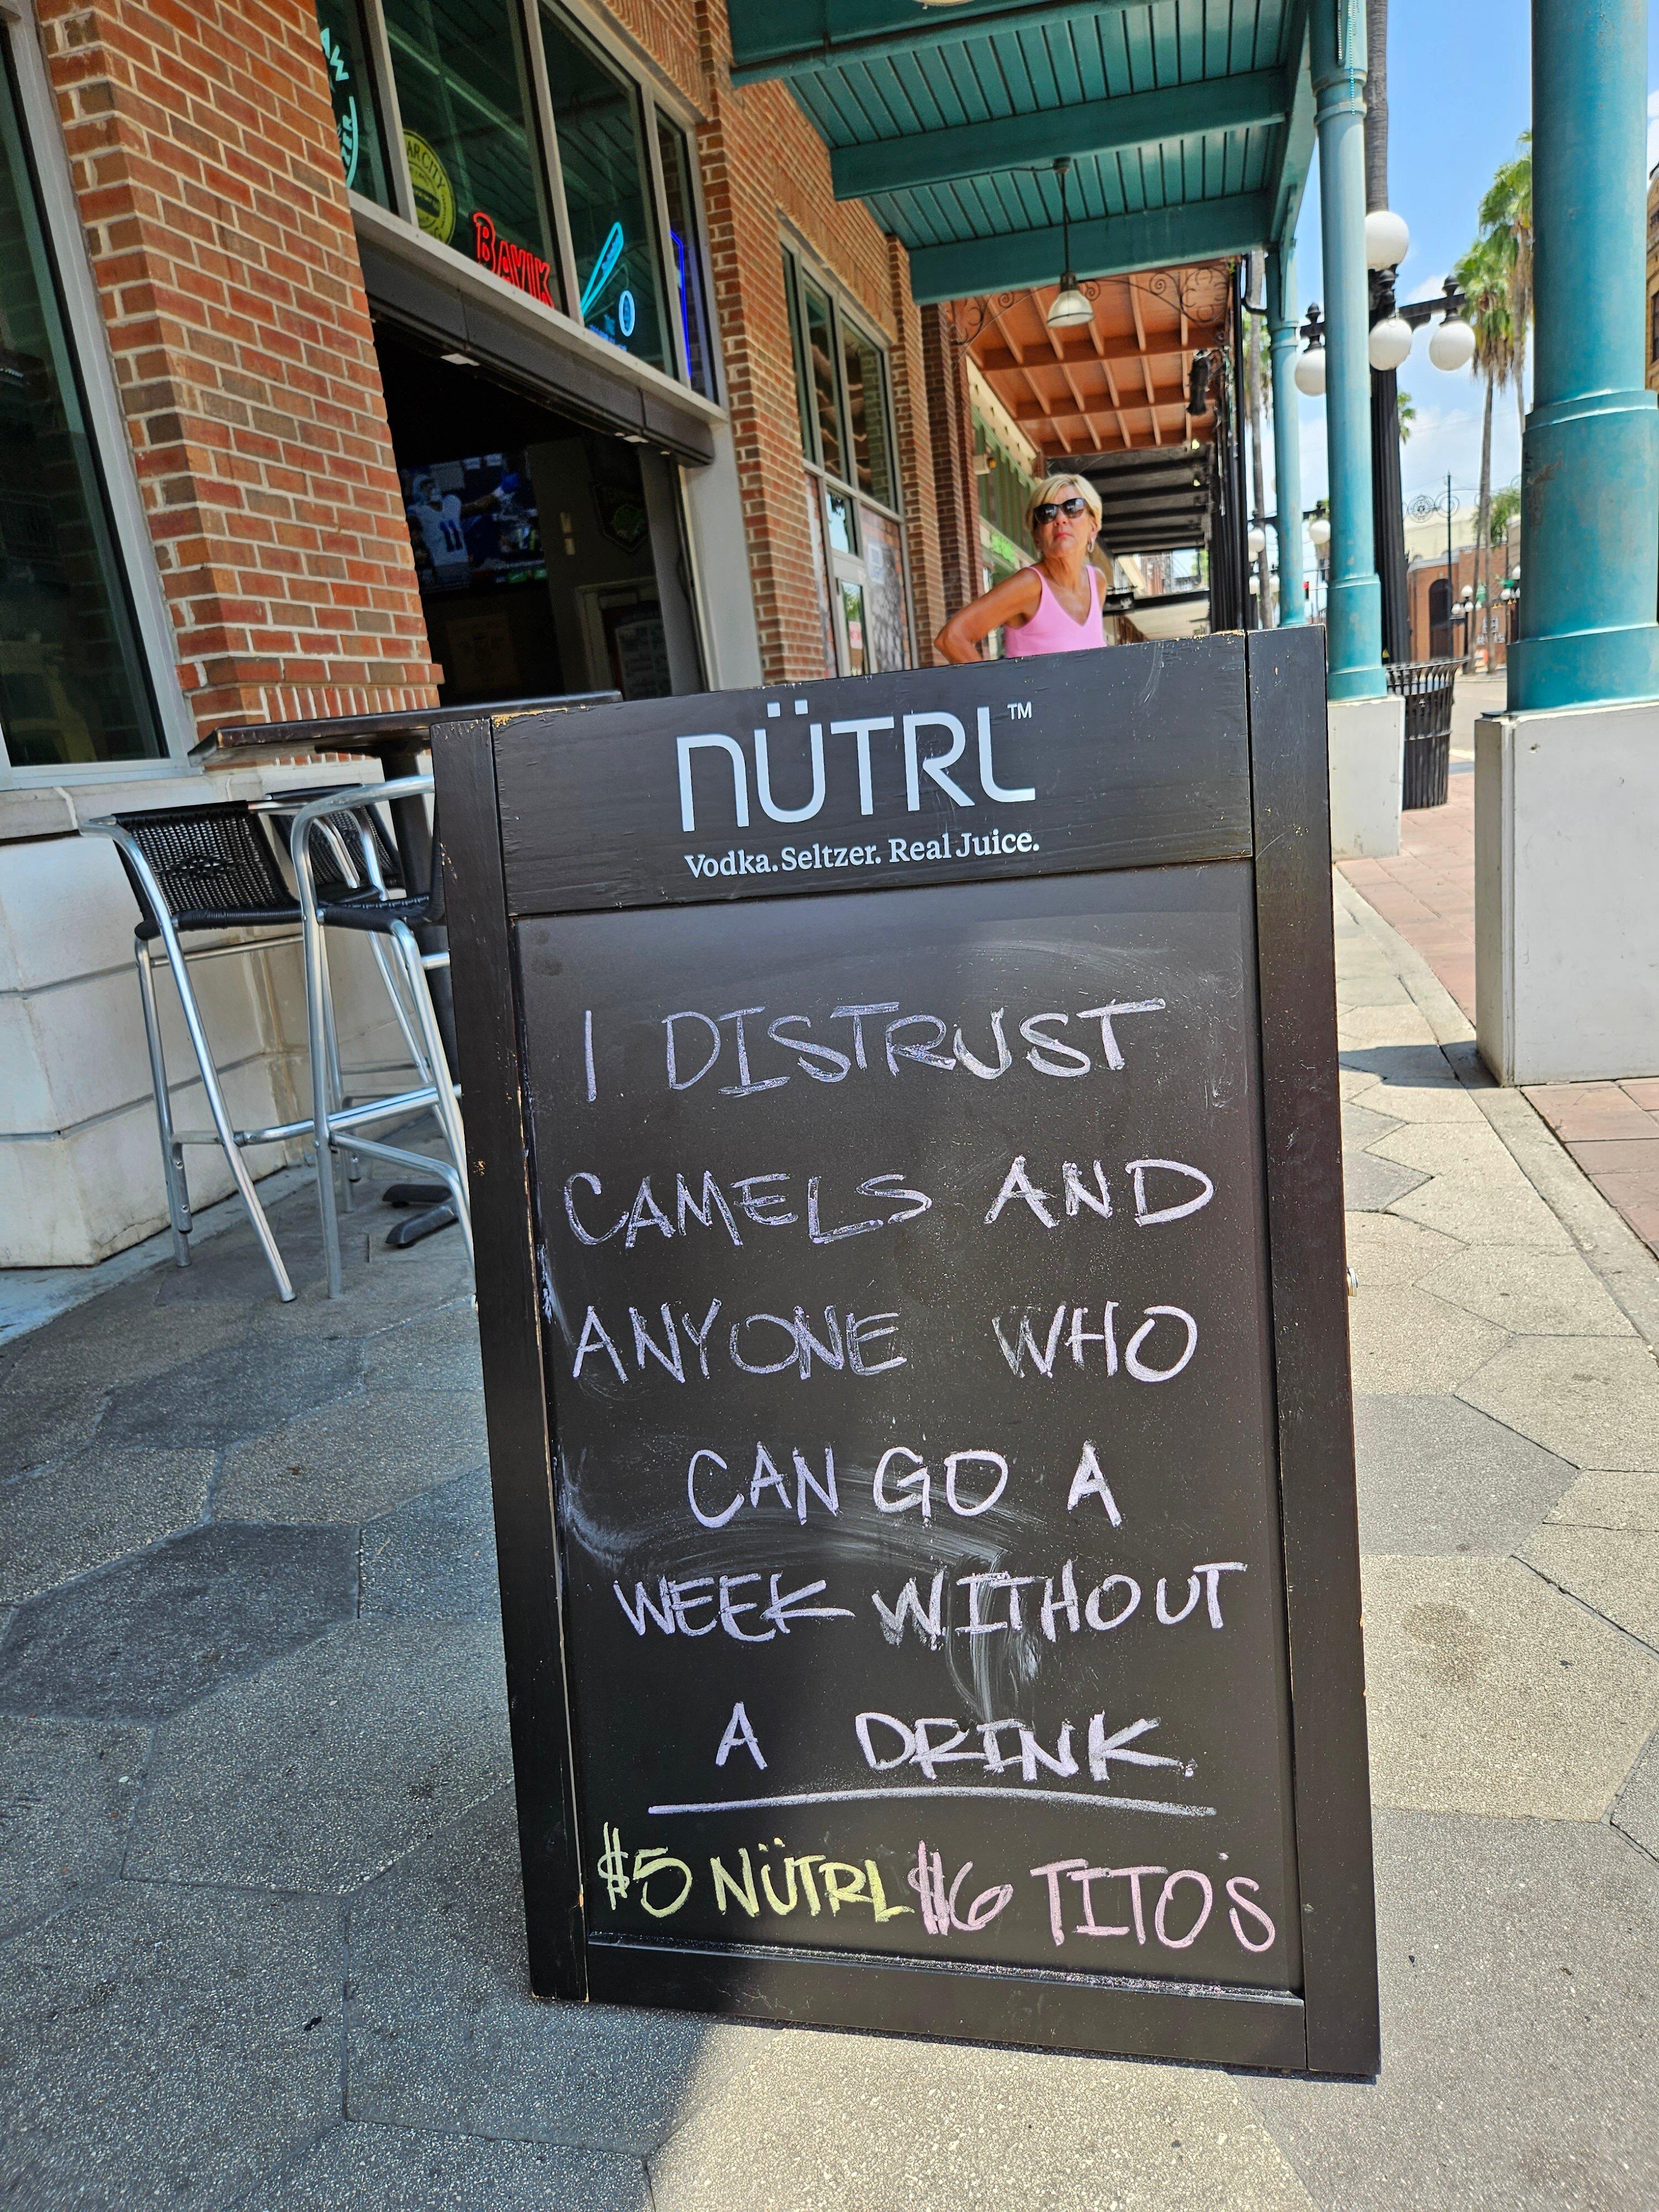 BAVIK
11
NÜTRL™
Vodka. Seltzer. Real Juice.
I DISTRUST
CAMELS AND
ANYONE WHO
CAN GO A
WEEK WITHOUT
A DRINK.
$5 NÜTRL $6 TITO'S